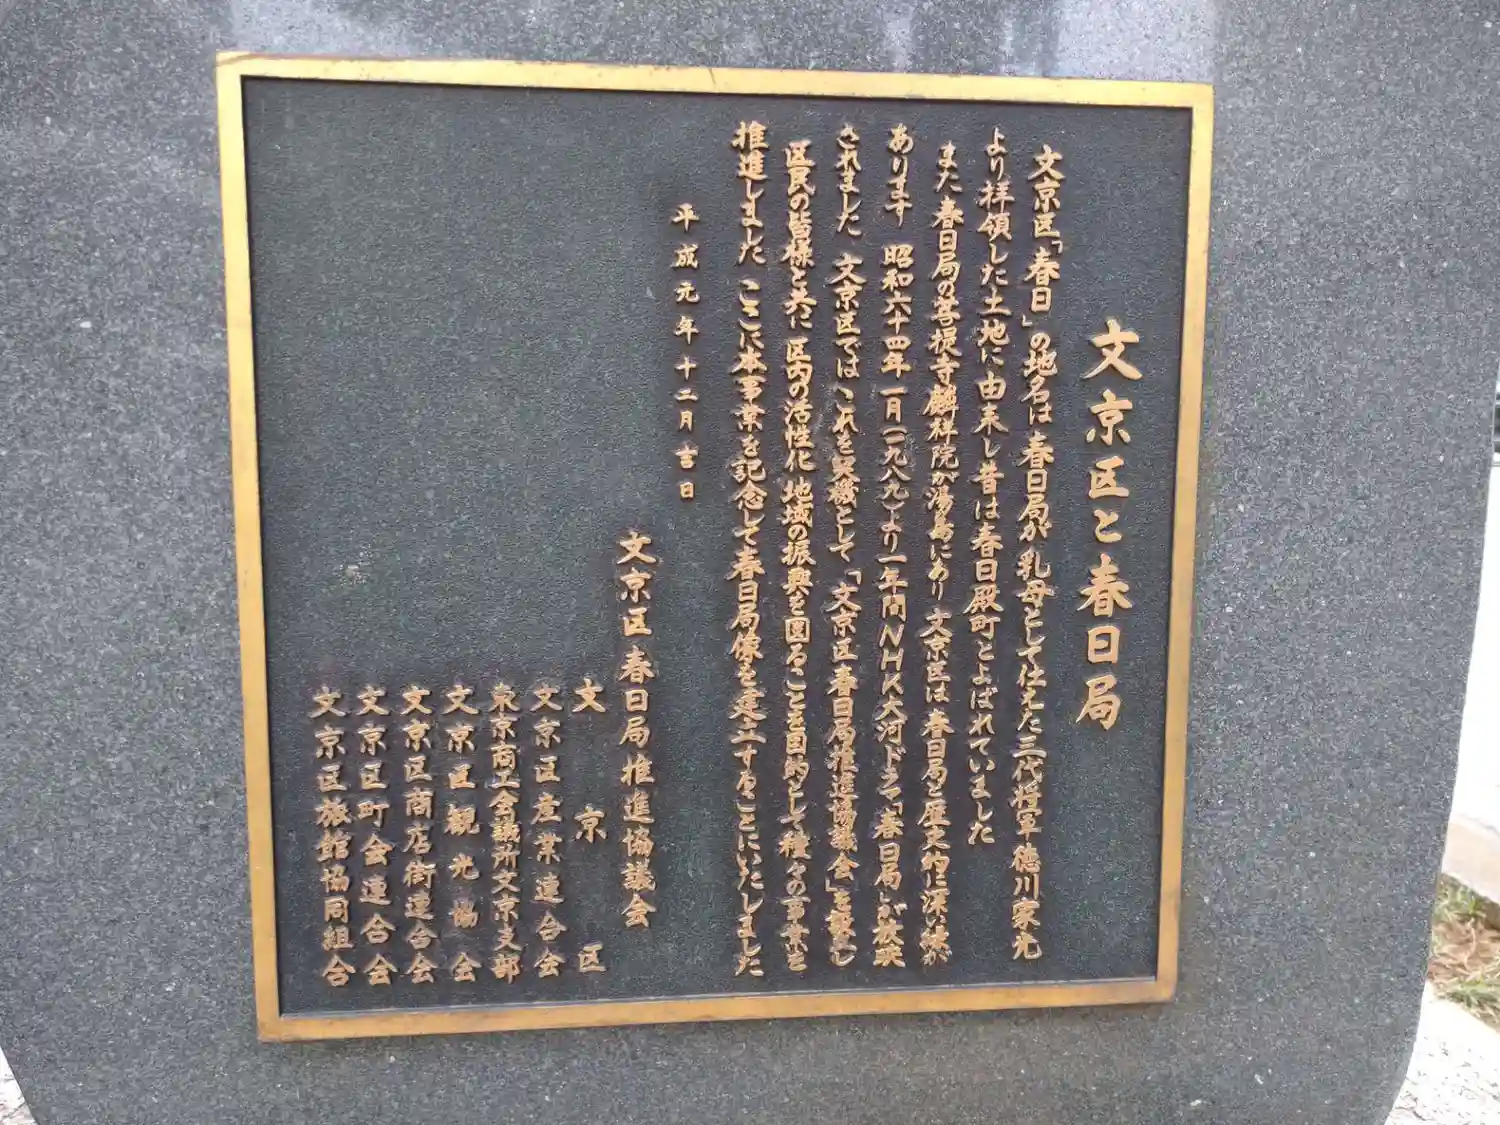 文京区と春日局
文京区「春日」の地名は春日局が乳母として仕えた三代将軍徳川家光
より拝領した土地に由来し昔は春日殿町とよばれていました
また春日局の菩提寺麟祥院が湯島にあり 文京区は春日局と歴史的に深い縁が
あります 昭和六十四年一月(一九八九)より一年間NHK大河ドラマ「春日局」が放映
されました 文京区ではこれを契機として「文京区春日局推進協議会」を設し
区民の皆様と共に区内の活性化 地域の振興を図ることを目的として種々の事業を
推進しました ここに本事業を記念して春日局像を建立することにいたしました
平成元年十二月吉日
文京区春日局推進協議会
文京区
文京区産業連合会
東京商工会議所文京支部
文京区観光協会
文京区商店街連合会
文京区町会連合会
文京区旅館協同組合